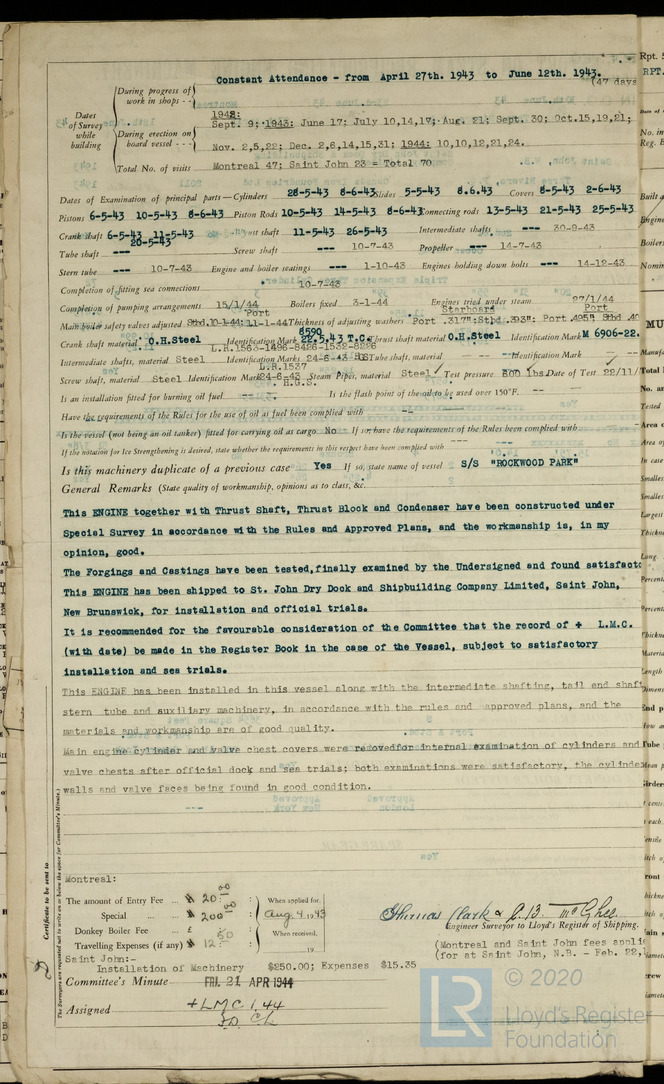 Constant Attendance - from April 27th. 1943 to June 12th. 1943.
(47 days
Rpt. 5
RPT.
During progress of work in shops - -
Dates of Survey while building
During erection on board vessel - - -
1943:
Sept. 9; 1943: June 17; July 10,14,17; Aug. 21; Sept. 30; Oct.15,19,21;
Nov. 2,5,22; Dec. 2,6,14,15,31; 1944: 10,10,12,21,24.
Total No. of visits Montreal 47; Saint John 23 = Total 70.
Dates of Examination of principal parts—Cylinders 28-5-43 8-6-43 Slides 5-5-43 8.6.43 Covers 8-5-43 2-6-43
Pistons 6-5-43 10-5-43 8-6-43 Piston Rods 10-5-43 14-5-43 8-6-43 Connecting rods 13-5-43 21-5-43 25-5-43
Crank shaft 6-5-43 11-5-43 Thrust shaft 11-5-43 26-5-43 Intermediate shafts --- 30-9-43
20-5-43
Tube shaft --- Screw shaft --- 10-7-43 Propeller --- 14-7-43
Stern tube --- 10-7-43 Engine and boiler seatings --- 1-10-43 Engines holding down bolts --- 14-12-43
Completion of fitting sea connections 10-7-43
Completion of pumping arrangements 15/1/44 Boilers fixed 3-1-44 Engines tried under steam 27/1/44
Port Starboard Port
Main boiler safety valves adjusted Stbd.10-1-44; 11-1-44 Thickness of adjusting washers Port .317"; Stbd .393"; Port .405 Stbd .40
8590
Crank shaft material O.H.Steel Identification Mark 22.5.43 T.C. Thrust shaft material O.H.Steel Identification Mark M 6906-22.
L.R.1563-1496-8426-1532-8226
Intermediate shafts, material Steel Identification Marks 24-6-43 Tube shaft, material --- Identification Mark
L.R.1537
Screw shaft, material Steel Identification Mark 24-6-43 Steam Pipes, material Steel Test pressure 500 lbs. Date of Test 22/11/
H.G.S.
Is an installation fitted for burning oil fuel --- Is the flash point of the oil to be used over 150°F. ---
Have the requirements of the Rules for the use of oil as fuel been complied with --
Is the vessel (not being an oil tanker) fitted for carrying oil as cargo No If so, have the requirements of the Rules been complied with ---
If the notation for Ice Strengthening is desired, state whether the requirements in this respect have been complied with ---
Is this machinery duplicate of a previous case Yes If so, state name of vessel S/S "ROCKWOOD PARK"
General Remarks (State quality of workmanship, opinions as to class, &c.
This ENGINE together with Thrust Shaft, Thrust Block and Condenser have been constructed under
Special Survey in accordance with the Rules and Approved Plans, and the workmanship is, in my
opinion, good.
The Forgings and Castings have been tested, finally examined by the Undersigned and found satisfacto
This ENGINE has been shipped to St. John Dry Dock and Shipbuilding Company Limited, Saint John,
New Brunswick, for installation and official trials.
It is recommended for the favourable consideration of the Committee that the record of + L.M.C.
(with date) be made in the Register Book in the case of the Vessel, subject to satisfactory
installation and sea trials.
This ENGINE has been installed in this vessel along with the intermediate shafting, tail end shaft
stern tube and auxiliary machinery, in accordance with the rules and approved plans, and the
materials and workmanship are of good quality.
Main engine cylinder and valve chest covers were removed for internal examination of cylinders and
valve chests after official dock and sea trials; both examinations were satisfactory, the cylinder
walls and valve faces being found in good condition.
Certificate to be sent to
(The Surveyors are requested not to write on or below the space for Committee's Minute.)
Montreal:
The amount of Entry Fee ... $ 20.00 When applied for,
Special ... $ 200.00 Aug. 4 1943
Donkey Boiler Fee ... £ When received,
Travelling Expenses (if any) $ 12.50 19
Thomas Clark & C.B. McGhee
Engineer Surveyor to Lloyd's Register of Shipping.
(Montreal and Saint John fees applie
(for at Saint John, N.B. - Feb. 22,
Saint John:-
Installation of Machinery $250.00; Expenses $15.35
Committee's Minute FRI. 21 APR 1944
Assigned +LMC 1,44
© 2020
LR
Lloyd's Register
Foundation